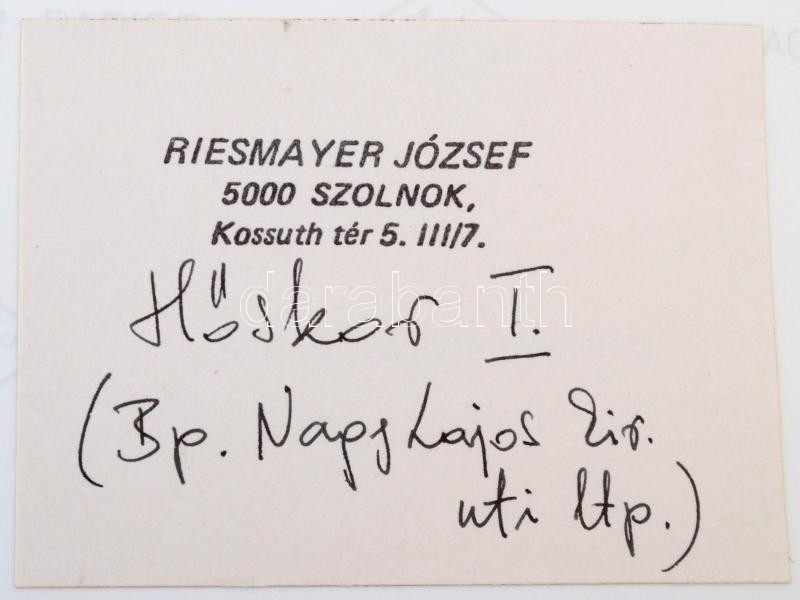 RIESMAYER JÓZSEF
5000 SZOLNOK,
Kossuth tér 5. III/7.
darabanth
Hőskor I.
(Bp. Nagy Lajos kir.
uti ltp.)